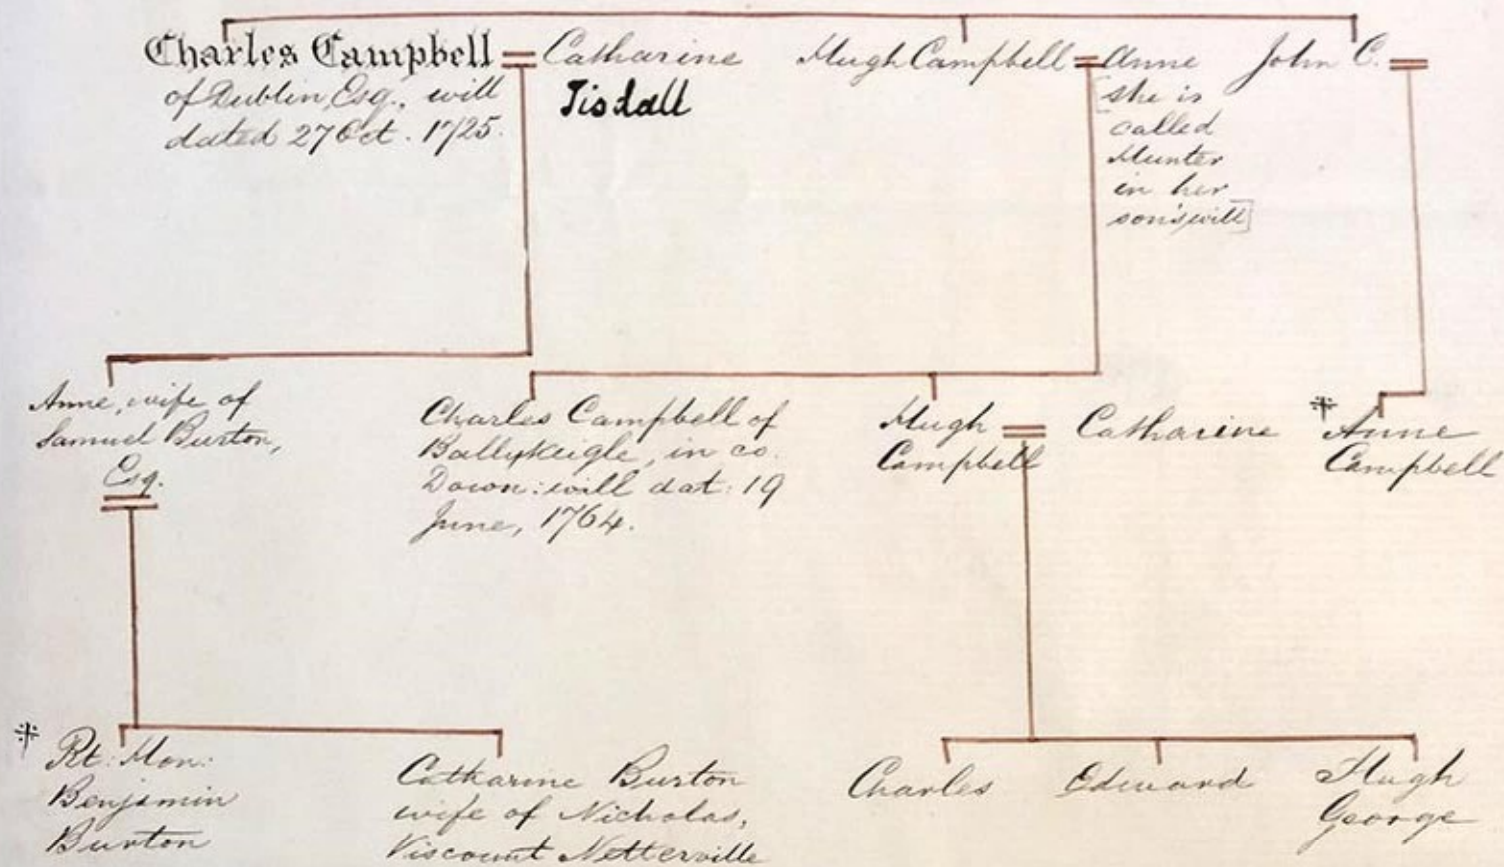 Charles Campbell = Catharine
of Dublin, Esq., will
dated 27 Oct. 1725.
Tisdall
Hugh Campbell = Anne
[she is
called
Hunter
in her
son's will]
John C. =
Anne, wife of
Samuel Burton,
Esq.
Charles Campbell of
Ballykeigle, in co.
Down: will dat: 19
June, 1764.
Hugh = Catharine
Campbell
* Anne
Campbell
* Rt. Hon:
Benjamin
Burton
Catharine Burton
wife of Nicholas,
Viscount Netterville
Charles
Edward
Hugh
George